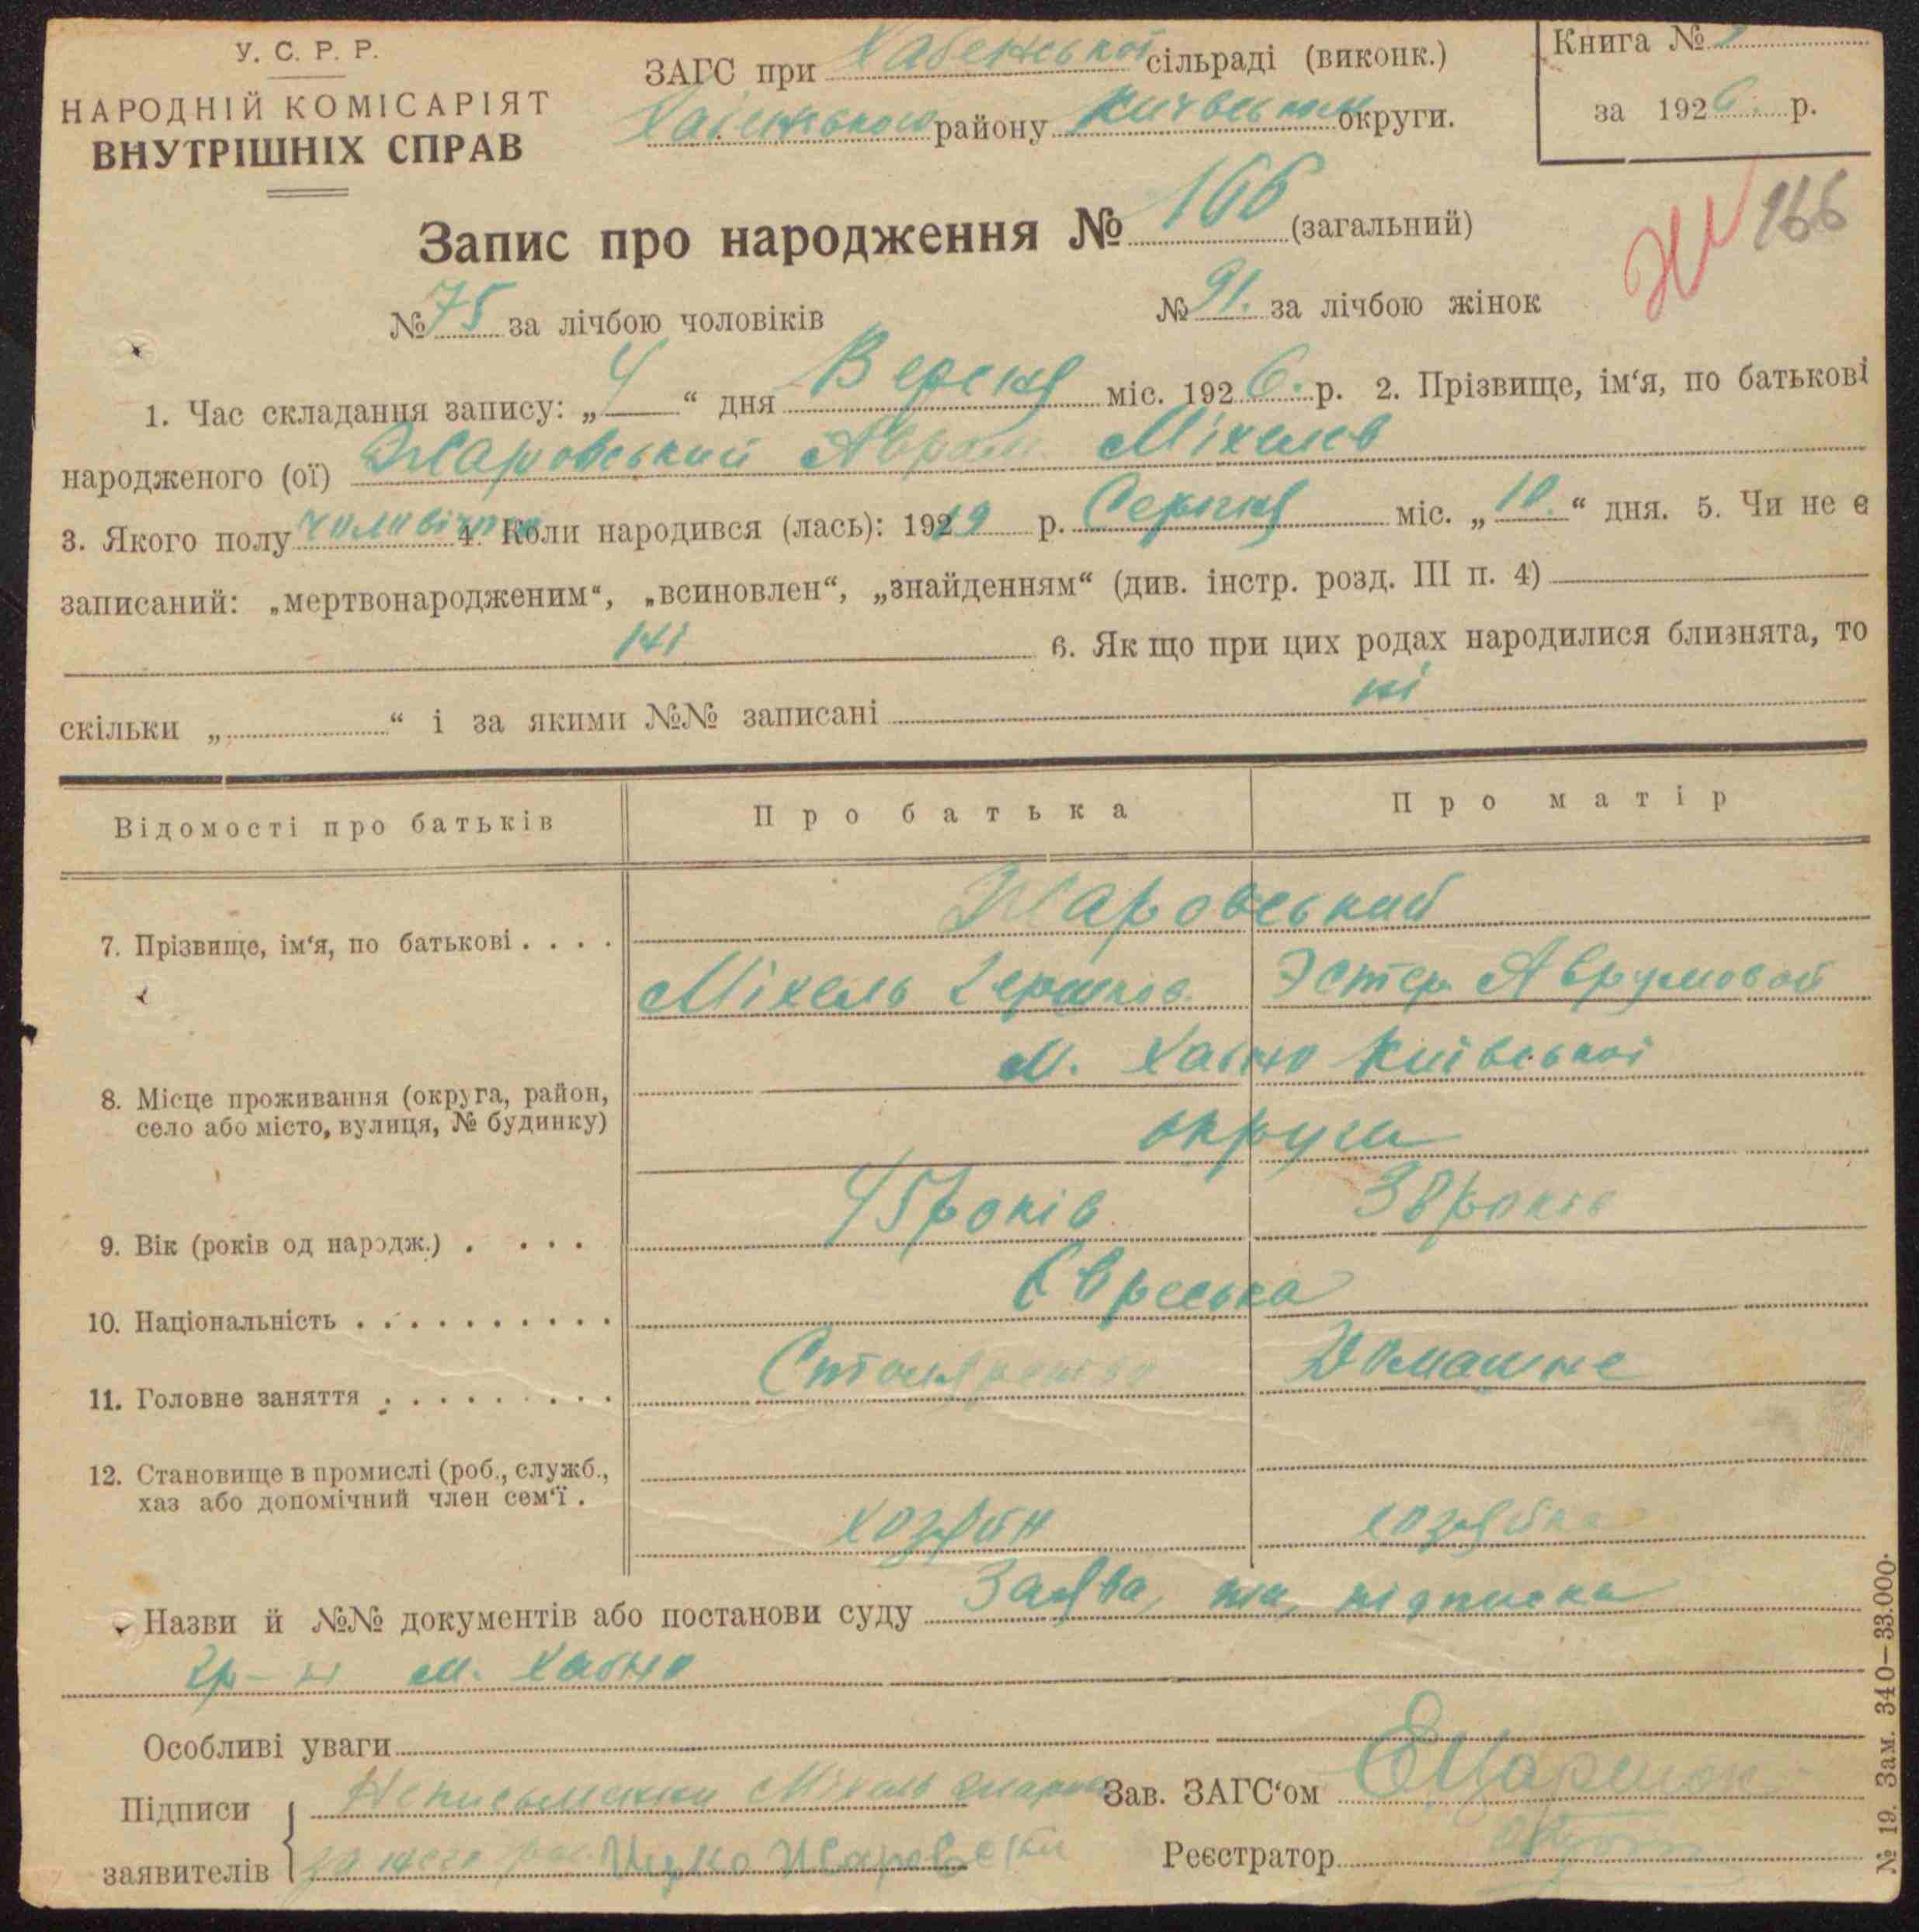 У. С. Р. Р.
НАРОДНІЙ КОМІСАРІЯТ
ВНУТРІШНІХ СПРАВ
ЗАГС при Хабенської сільраді (виконк.)
Хабенського району Київської округи.
Книга №
за 1926 р.
Запис про народження № 166 (загальний)
Ж 166
№ 75 за лічбою чоловіків № 91. за лічбою жінок
1. Час складання запису: „ 4 “ дня Версня міс. 1926. р. 2. Прізвище, ім‘я, по батькові
народженого (ої) Жаровський Аврам Міхелев
3. Якого полу чоловічого 4. Коли народився (лась): 19219 р. Серпня міс. „ 10. “ дня. 5. Чи не є
записаний: „мертвонародженим“, „всиновлен“, „знайденням“ (див. інстр. розд. III п. 4)
ні 6. Як що при цих родах народилися близнята, то
скільки „ “ і за якими №№ записані ні
Відомості про батьків Про батька Про матір
Жаровський
7. Прізвище, ім‘я, по батькові . . . .
Міхель Гершков Эстер Аврумовой
м. Хабно Київської
8. Місце проживання (округа, район,
село або місто, вулиця, № будинку)
округи
9. Вік (років од народж.) . . . . 45 років 38 років
10. Національність . . . . . . . . . . Євреська
11. Головне заняття . . . . . . . . . Столярство Домашне
12. Становище в промислі (роб., служб.,
хаз або допомічний член сем‘ї .
хозяїн хозяїка
Назви й №№ документів або постанови суду Заява, та підписка
гр-н м. Хабно
Особливі уваги
Підписи
заявителів
Неписьменни Міхель Жаров
за него Жаровски
Зав. ЗАГС‘ом
Реєстратор
№ 19. Зам. 340—33.000.